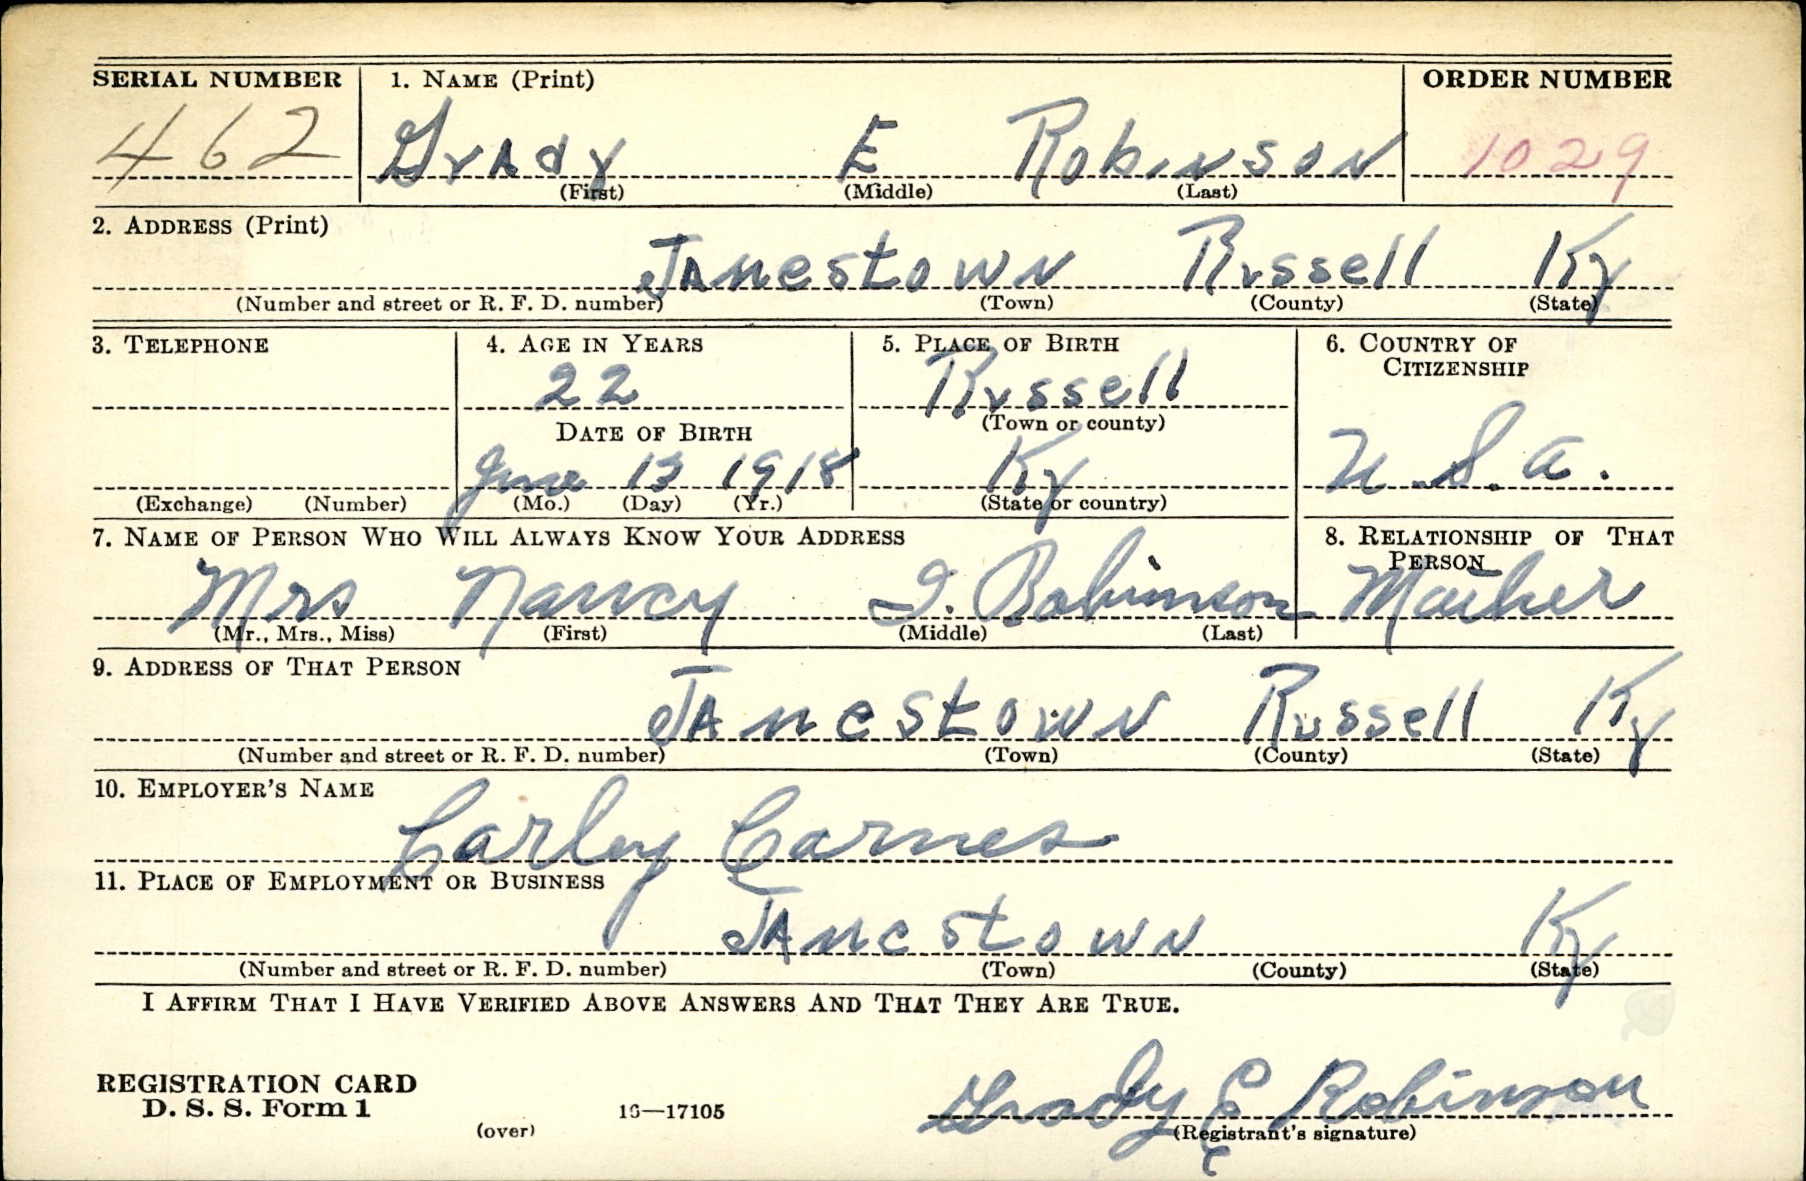 SERIAL NUMBER 1. NAME (Print) ORDER NUMBER
462 Grady E Robinson 1029
(First) (Middle) (Last)
2. ADDRESS (Print)
Jamestown Russell Ky
(Number and street or R. F. D. number) (Town) (County) (State)
3. TELEPHONE 4. AGE IN YEARS 5. PLACE OF BIRTH 6. COUNTRY OF CITIZENSHIP
22 Russell
(Town or county)
DATE OF BIRTH
June 13 1918 Ky U.S.A.
(Exchange) (Number) (Mo.) (Day) (Yr.) (State or country)
7. NAME OF PERSON WHO WILL ALWAYS KNOW YOUR ADDRESS 8. RELATIONSHIP OF THAT PERSON
Mrs Nancy I. Robinson Mother
(Mr., Mrs., Miss) (First) (Middle) (Last)
9. ADDRESS OF THAT PERSON
Jamestown Russell Ky
(Number and street or R. F. D. number) (Town) (County) (State)
10. EMPLOYER'S NAME
Carley Carnes
11. PLACE OF EMPLOYMENT OR BUSINESS
Jamestown Ky
(Number and street or R. F. D. number) (Town) (County) (State)
I AFFIRM THAT I HAVE VERIFIED ABOVE ANSWERS AND THAT THEY ARE TRUE.
Grady E Robinson
REGISTRATION CARD
D. S. S. Form 1 16—17105
(over) (Registrant's signature)